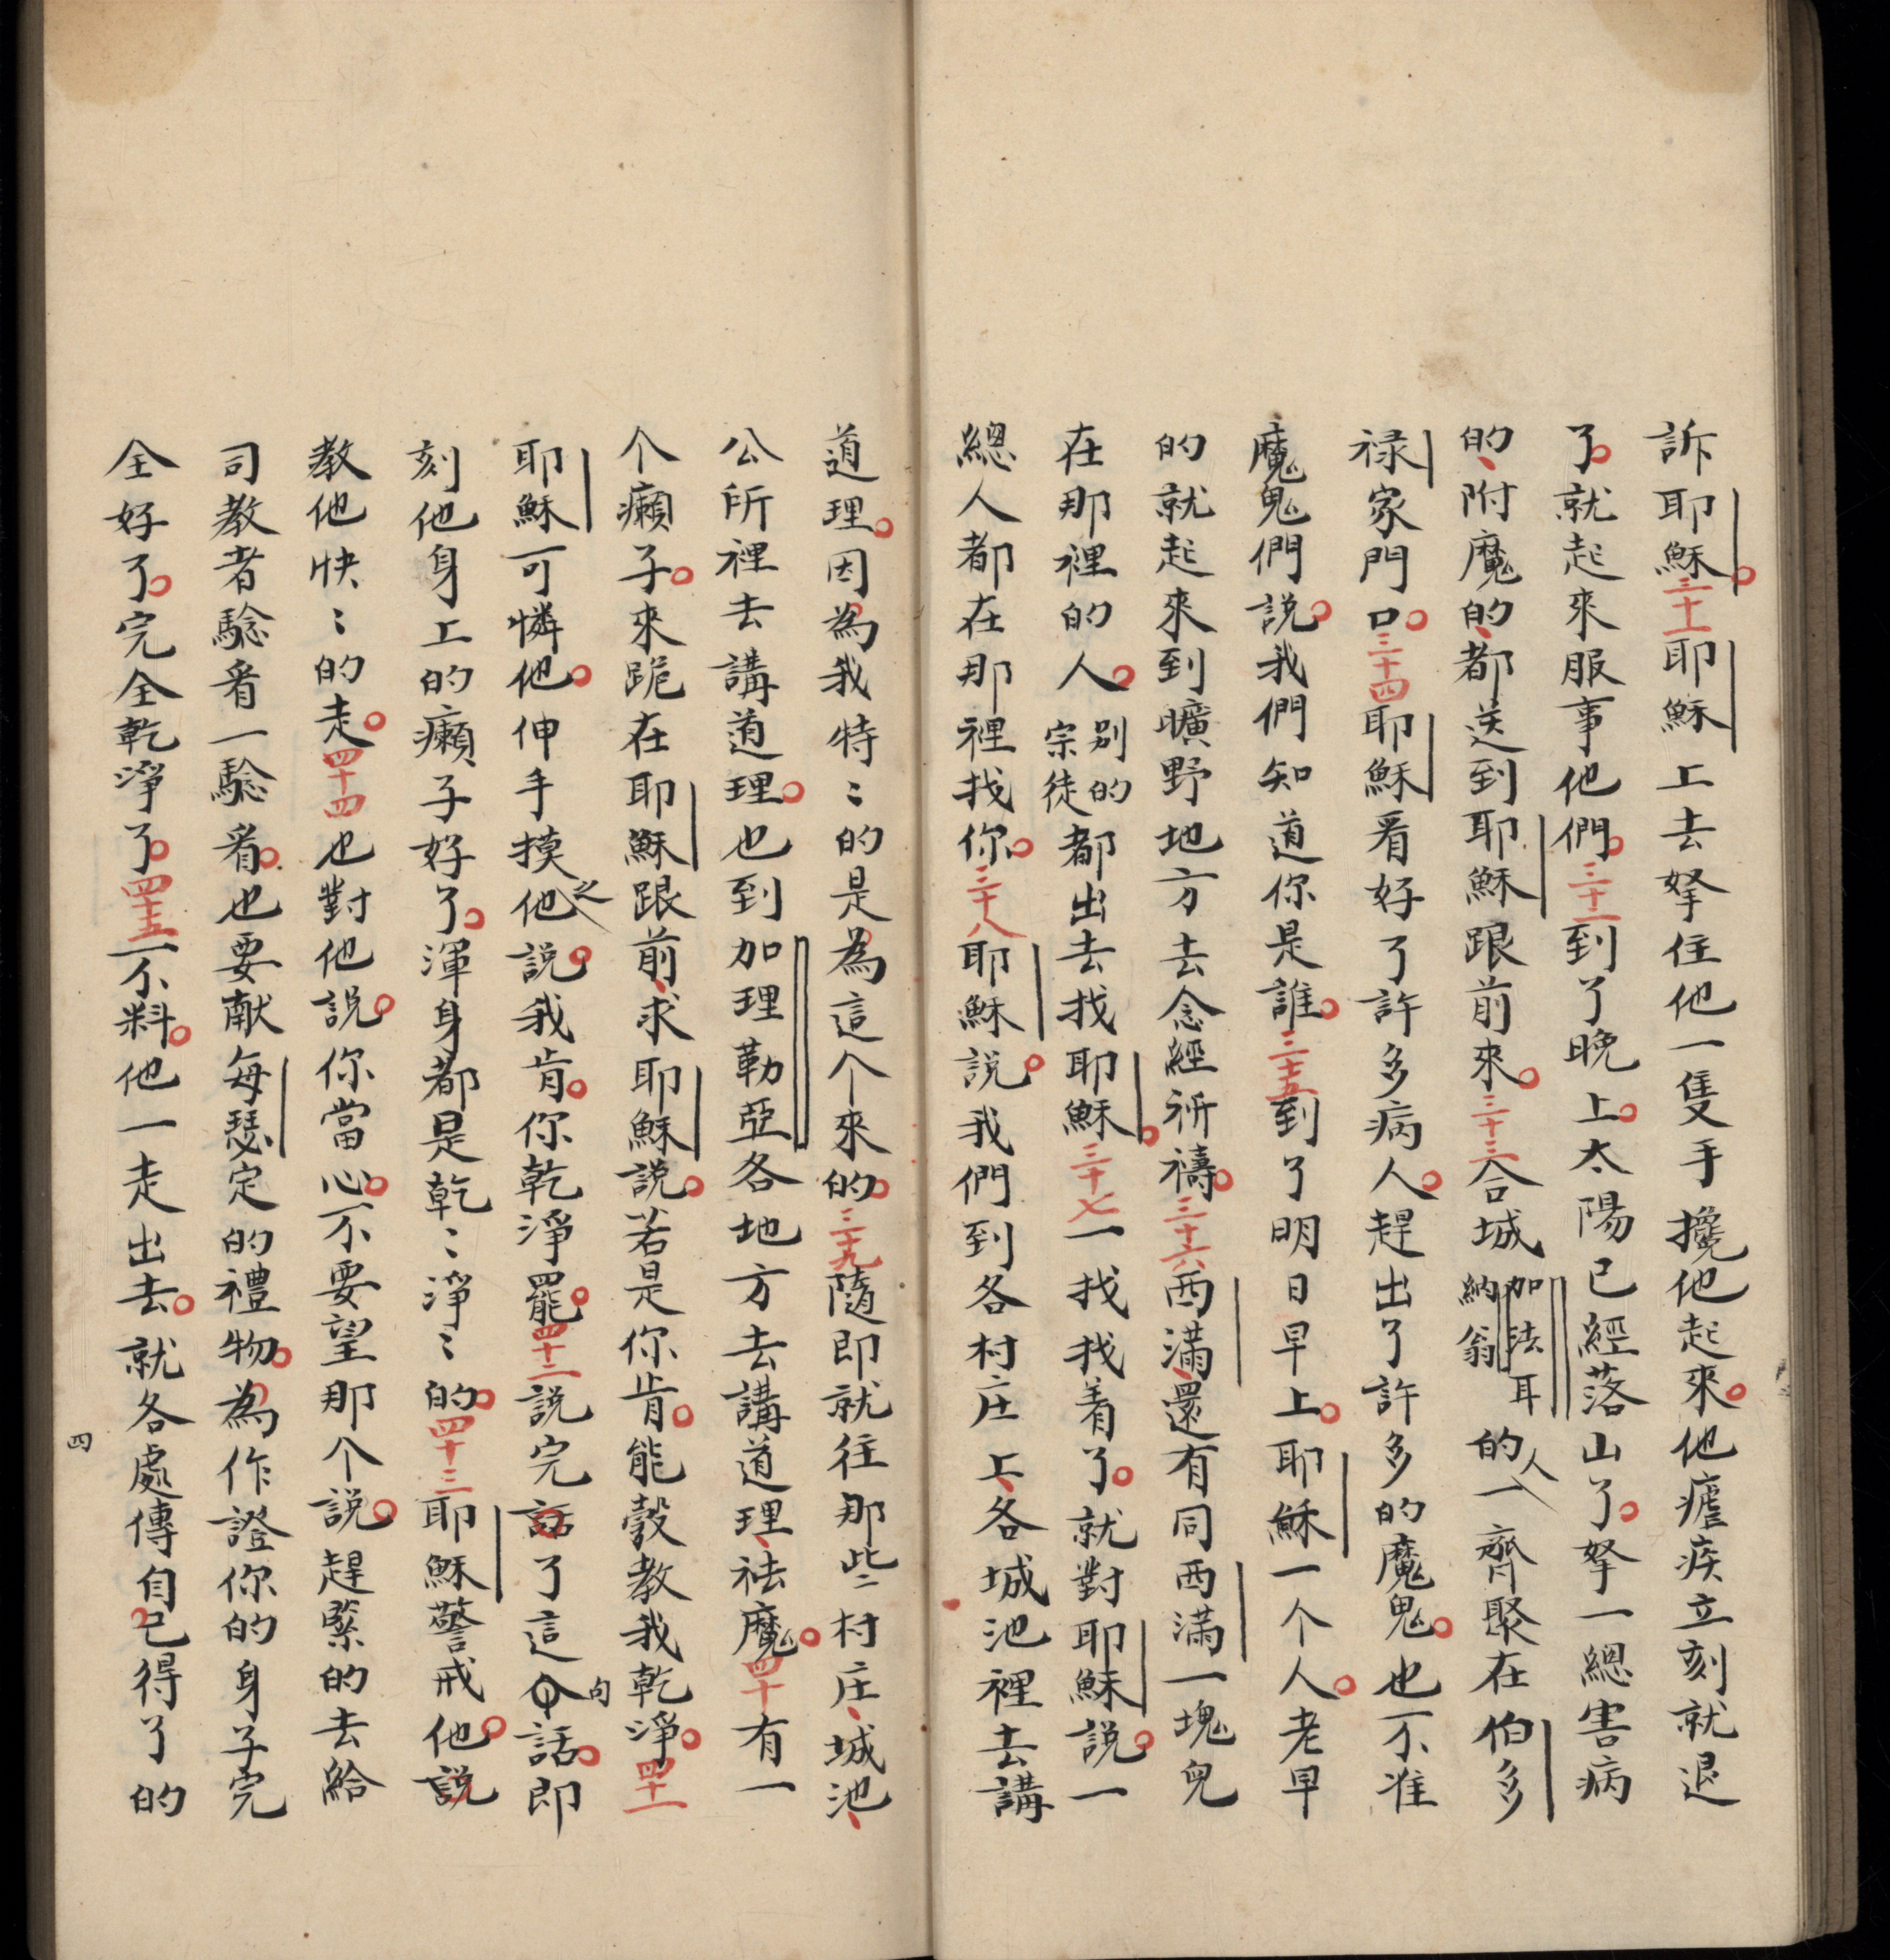 訴耶穌。三十一耶穌上去拏住他一隻手攙他起來。他瘧疾立刻就退
了。就起來服事他們。三十二到了晚上。太陽已經落山了。拏一總害病
的、附魔的、都送到耶穌跟前來。三十三合城加法耳納翁的人一齊聚在伯多
祿家門口。三十四耶穌看好了許多病人。趕出了許多的魔鬼。也不准
魔鬼們說。我們知道你是誰。三十五到了明日早上。耶穌一个人。老早
的就起來到曠野地方去念經祈禱。三十六西滿、還有同西滿一塊兒
在那裡的人。別的宗徒都出去找耶穌。三十七一找找着了。就對耶穌說。一
總人都在那裡找你。三十八耶穌說。我們到各村庄上、各城池裡去講
道理。因為我特〻的是為這个來的。三十九隨即就往那些村庄、城池、
公所裡去講道理。也到加理勒亞各地方去講道理、祛魔。四十有一
个癩子。來跪在耶穌跟前、求耶穌說。若是你肯。能彀教我乾淨。四十一
耶穌可憐他。伸手摸他之說。我肯。你乾淨罷。四十二說完話了這个句話。即
刻他身上的癩子好了。渾身都是乾〻淨〻的。四十三耶穌警戒他。說
教他快〻的走。四十四也對他說。你當心。不要望那个說。趕緊的去給
司教者騐看一騐看。也要献每瑟定的禮物。為作證你的身子完
全好了。完全乾淨了。四十五不料。他一走出去。就各處傳自己得了的
四